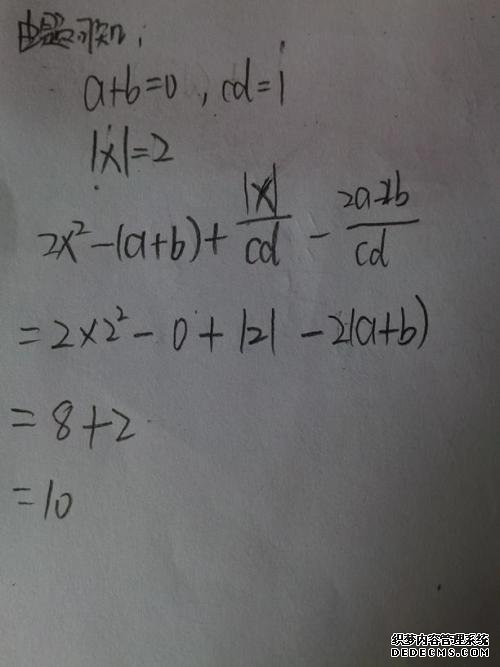 由题可知,
a+b=0, cd=1
|x|=2
2x²-(a+b)+|x|/cd-2a+2b/cd
=2×2²-0+|2|-2(a+b)
=8+2
=10
织梦内容管理系统
DEDECMS.COM